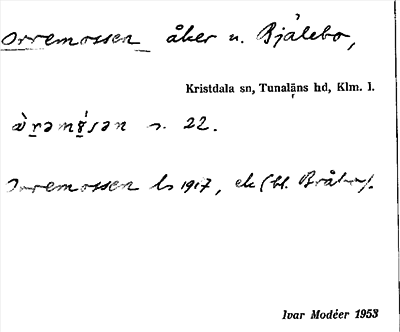 Orremossen åker u. Bjälebo,
Kristdala sn, Tunaläns hd, Klm. l.
s. 22.
Orremossen ls 1917, ek (bl. Bråbo).
Ivar Modéer 1953